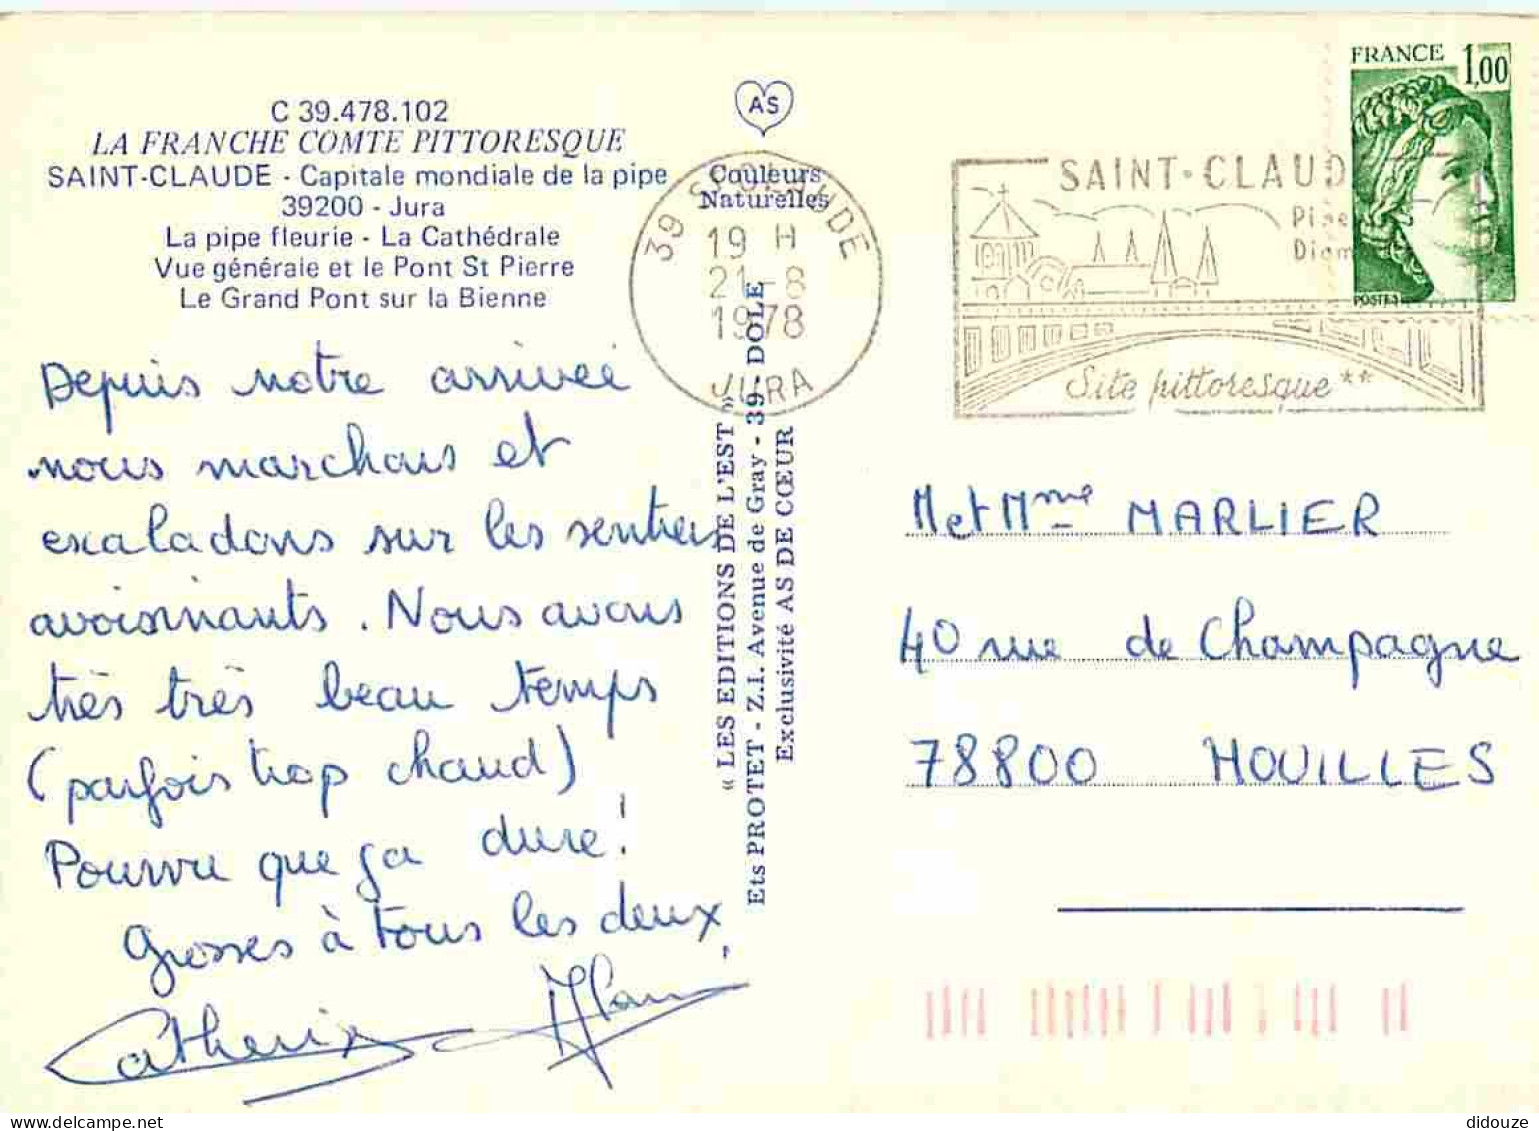 C 39.478.102
LA FRANCHE COMTE PITTORESQUE
SAINT-CLAUDE - Capitale mondiale de la pipe
39200 - Jura
La pipe fleurie - La Cathédrale
Vue générale et le Pont St Pierre
Le Grand Pont sur la Bienne
Depuis notre arrivée
nous marchons et
escaladons sur les sentiers
avoisinants. Nous avons
très très beau temps
(parfois trop chaud)
Pourvu que ça dure!
Grosses à tous les deux
Catherine Alain
AS
Couleurs
Naturelles
« LES EDITIONS DE L'EST »
Ets PROTET - Z.I. Avenue de Gray - 39 DOLE
Exclusivité AS DE CŒUR
39 ST CLAUDE
19 H
21-8
1978
JURA
SAINT-CLAUD
Pipe
Diam
Site pittoresque**
FRANCE 1,00
POSTES
M et Mme MARLIER
40 rue de Champagne
78800 HOUILLES
delcampe.net
didouze